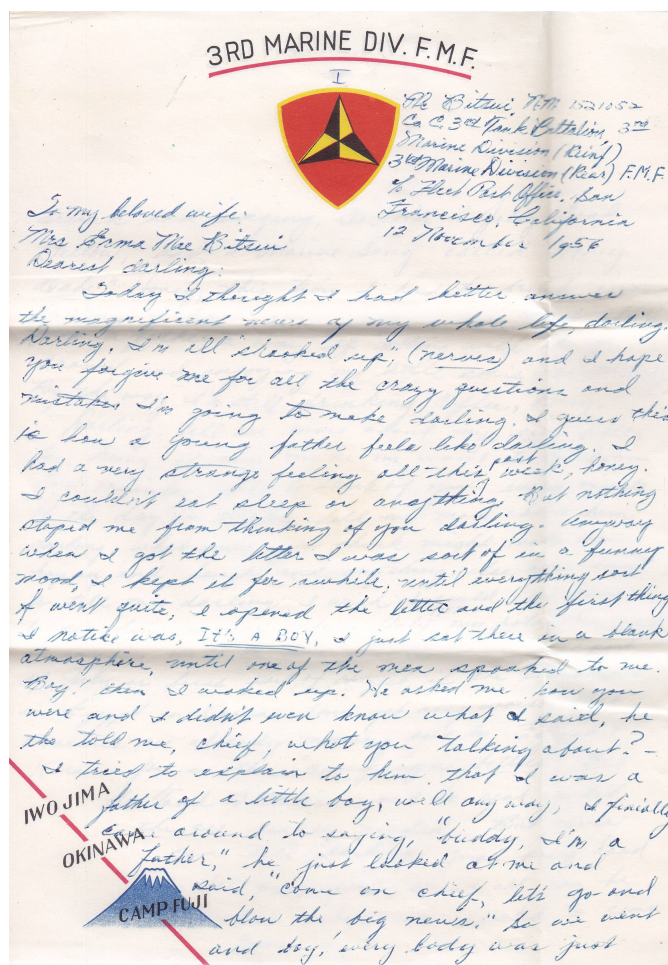 3RD MARINE DIV. F.M.F.
I
Pfc Bitsui, N.M. 1521052
Co C. 3rd Tank Battalion, 3rd
Marine Division (Reinf)
3rd Marine Division (Rear) F.M.F.
% Fleet Post Office, San
Francisco, California
12 November 1956
To my beloved wife:
Mrs Erma Mae Bitsui
Dearest darling:
Today I thought I had better answer
the magnificent news of my whole life, darling.
Darling, I'm all "shooked up"; (nerves) and I hope
you forgive me for all the crazy questions and
mistakes I'm going to make darling. I guess this
is how a young father feels like darling, I
had a very strange feeling all this past week, honey.
I couldn't eat sleep or anything, But nothing
stoped me from thinking of you darling. Anyway
when I got the letter I was sort of in a funny
mood, I kept it for awhile, until everything sort
of went quite, I opened the letter and the first thing
I notice was, IT'S A BOY, I just sat there in a blank
atmosphere, until one of the men spoaked to me.
Boy! then I waked up. He asked me how you
were and I didn't even know what I said, he
the told me, chief, what you talking about? -
I tried to explain to him that I was a
father of a little boy, well anyway, I finially
came around to saying, "buddy, I'm a
father," he just looked at me and
said, "come on chief, let's go and
blow the big news." So we went
and boy, every body was just
IWO JIMA
OKINAWA
CAMP FUJI